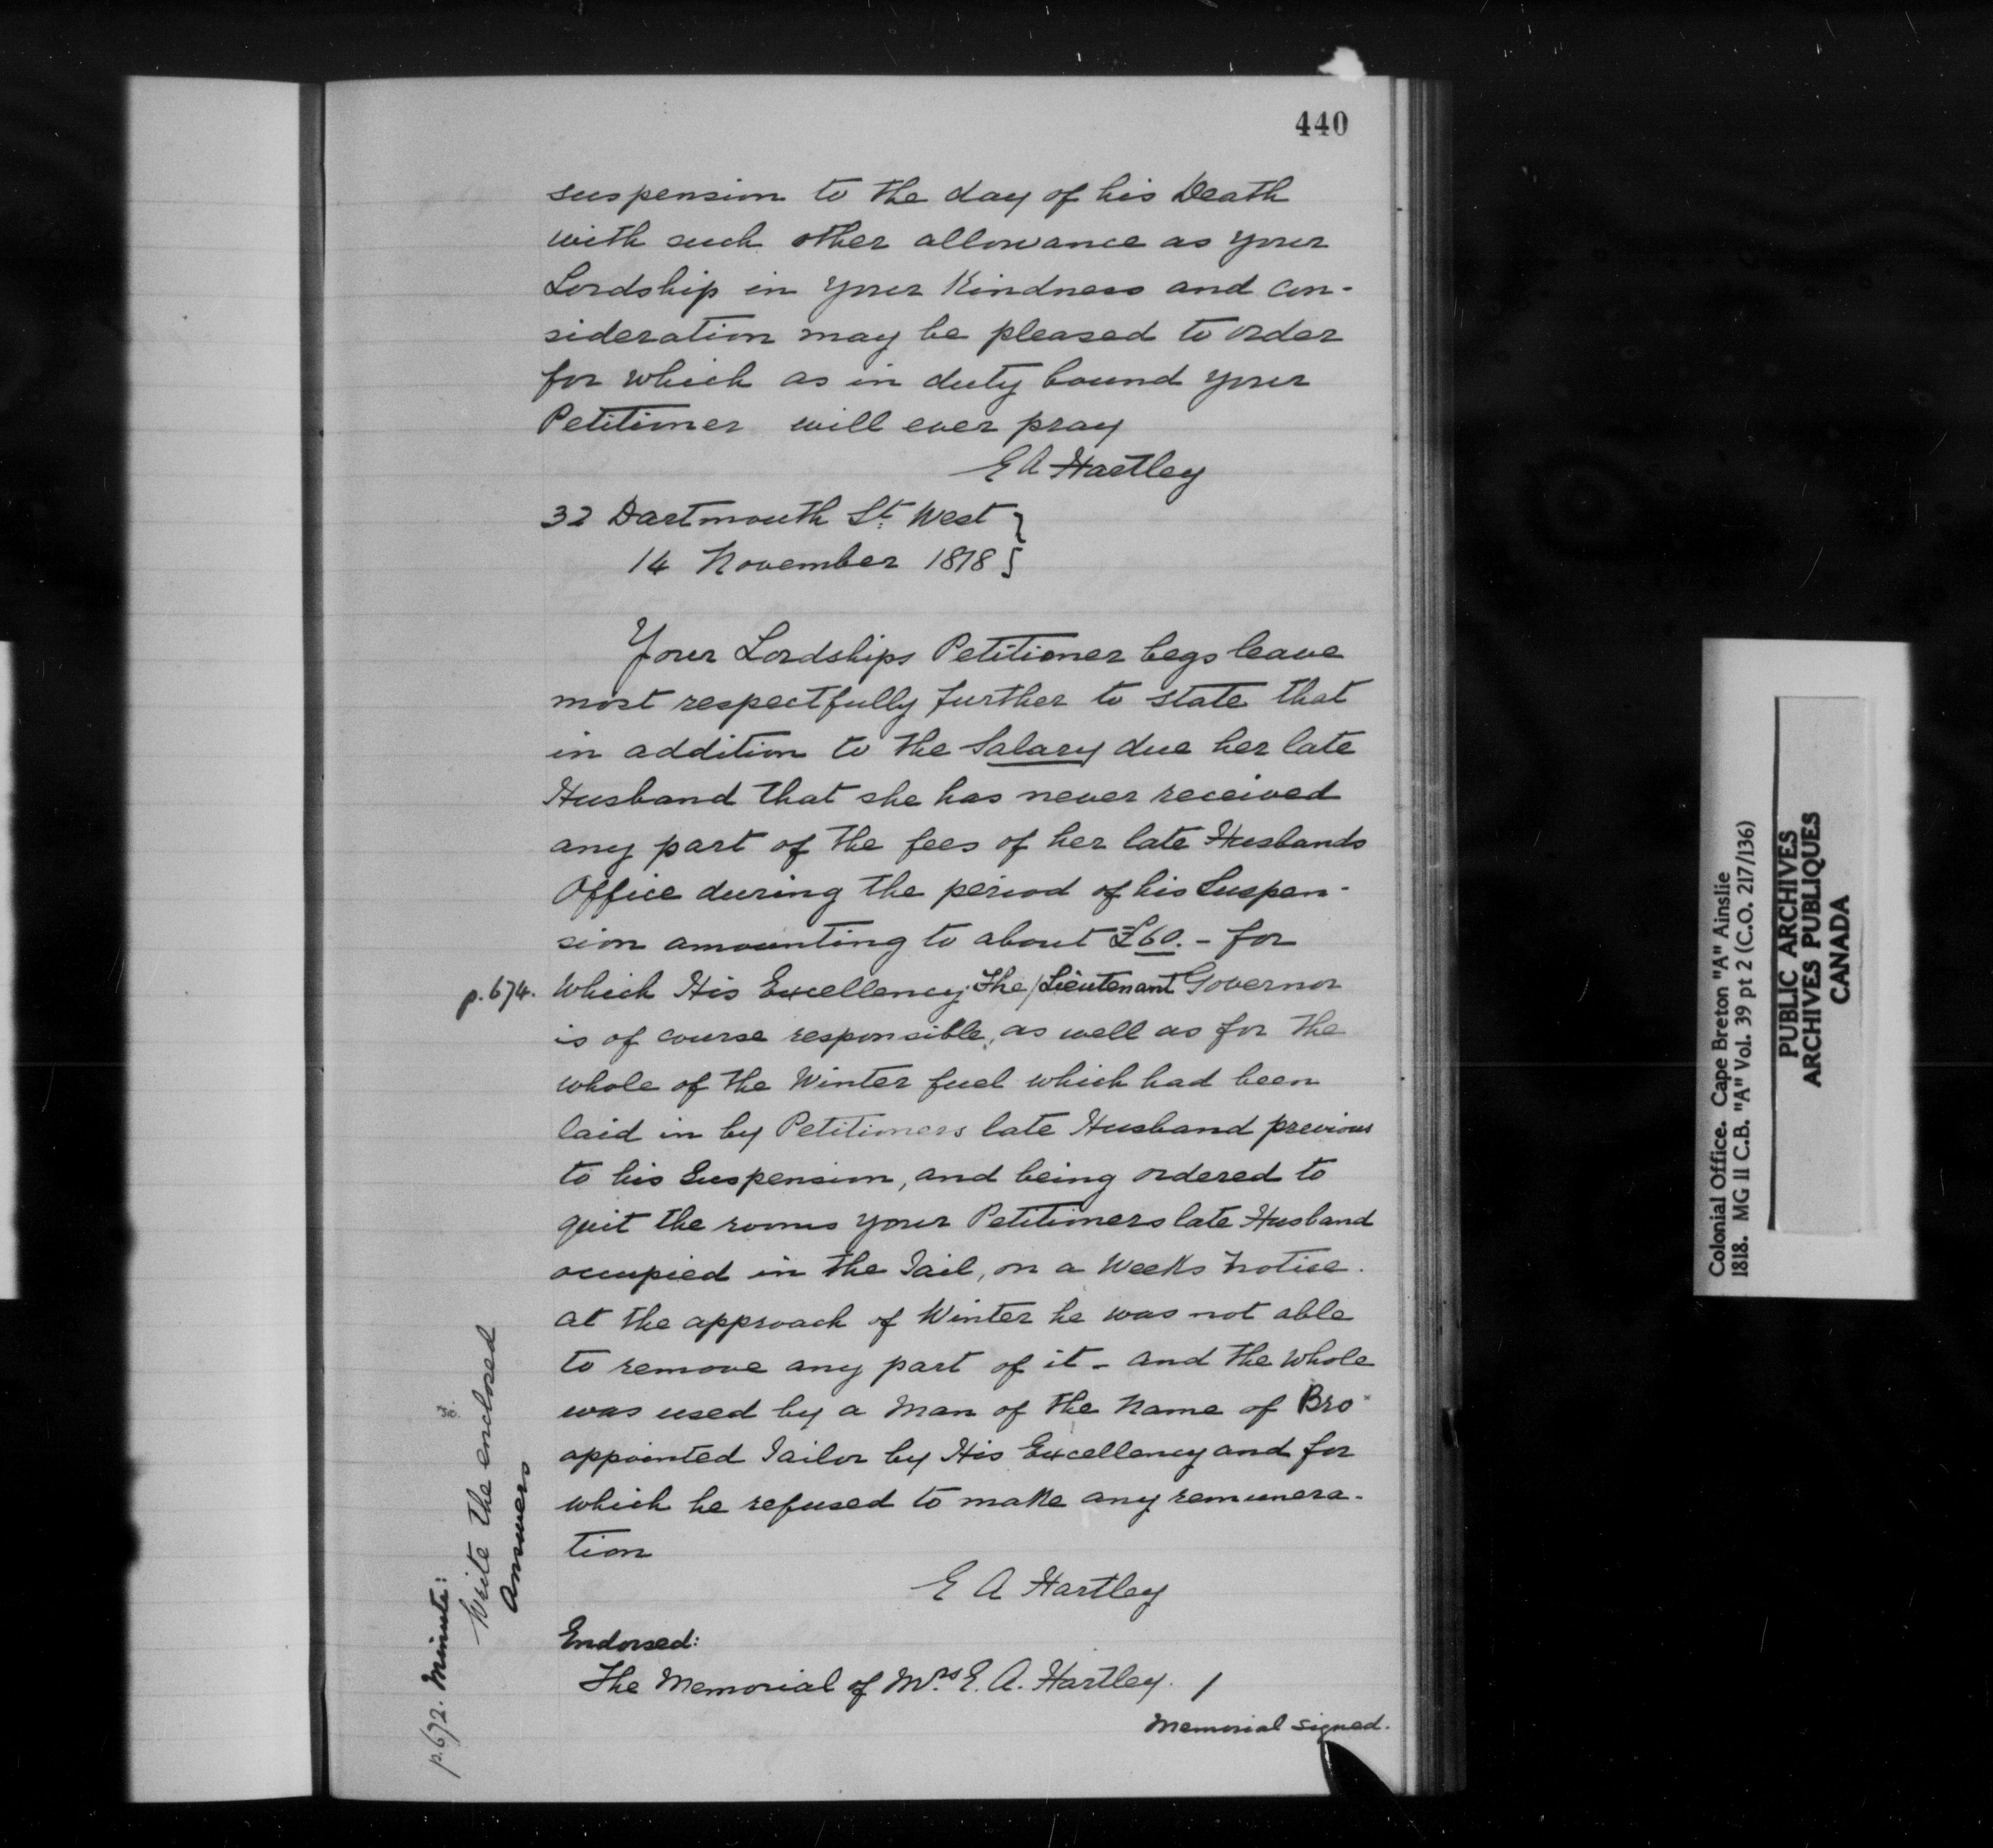 440
suspension to the day of his Death
with such other allowance as your
Lordship in your Kindness and con-
sideration may be pleased to order
for which as in duty bound your
Petitioner will ever pray
E A Hartley
32 Dartmouth St. West
14 November 1818
Your Lordships Petitioner begs leave
most respectfully further to state that
in addition to the Salary due her late
Husband that she has never received
any part of the fees of her late Husbands
Office during the period of his Suspen-
sion amounting to about £60. - for
p.674. which His Excellency The/Lieutenant Governor
is of course responsible, as well as for the
whole of the Winter fuel which had been
laid in by Petitioners late Husband previous
to his Suspension, and being ordered to
quit the rooms your Petitioners late Husband
occupied in the Jail, on a Weeks notice.
at the approach of Winter he was not able
to remove any part of it - and the whole
was used by a Man of the Name of Bro
appointed Jailor by His Excellency and for
which he refused to make any remunera-
tion
E A Hartley
Endorsed:
The Memorial of Mrs E. A. Hartley. /
Memorial signed.
p.672. Minute:
Write the enclosed
Answers
Colonial Office. Cape Breton "A" Ainslie
1818. MG 11 C.B. "A" Vol. 39 pt 2 (C.O. 217/136)
PUBLIC ARCHIVES
ARCHIVES PUBLIQUES
CANADA